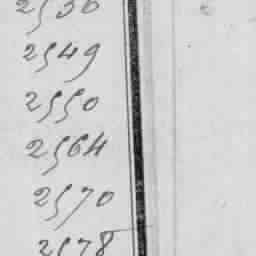 2536
2549
2550
2564
2570
2578